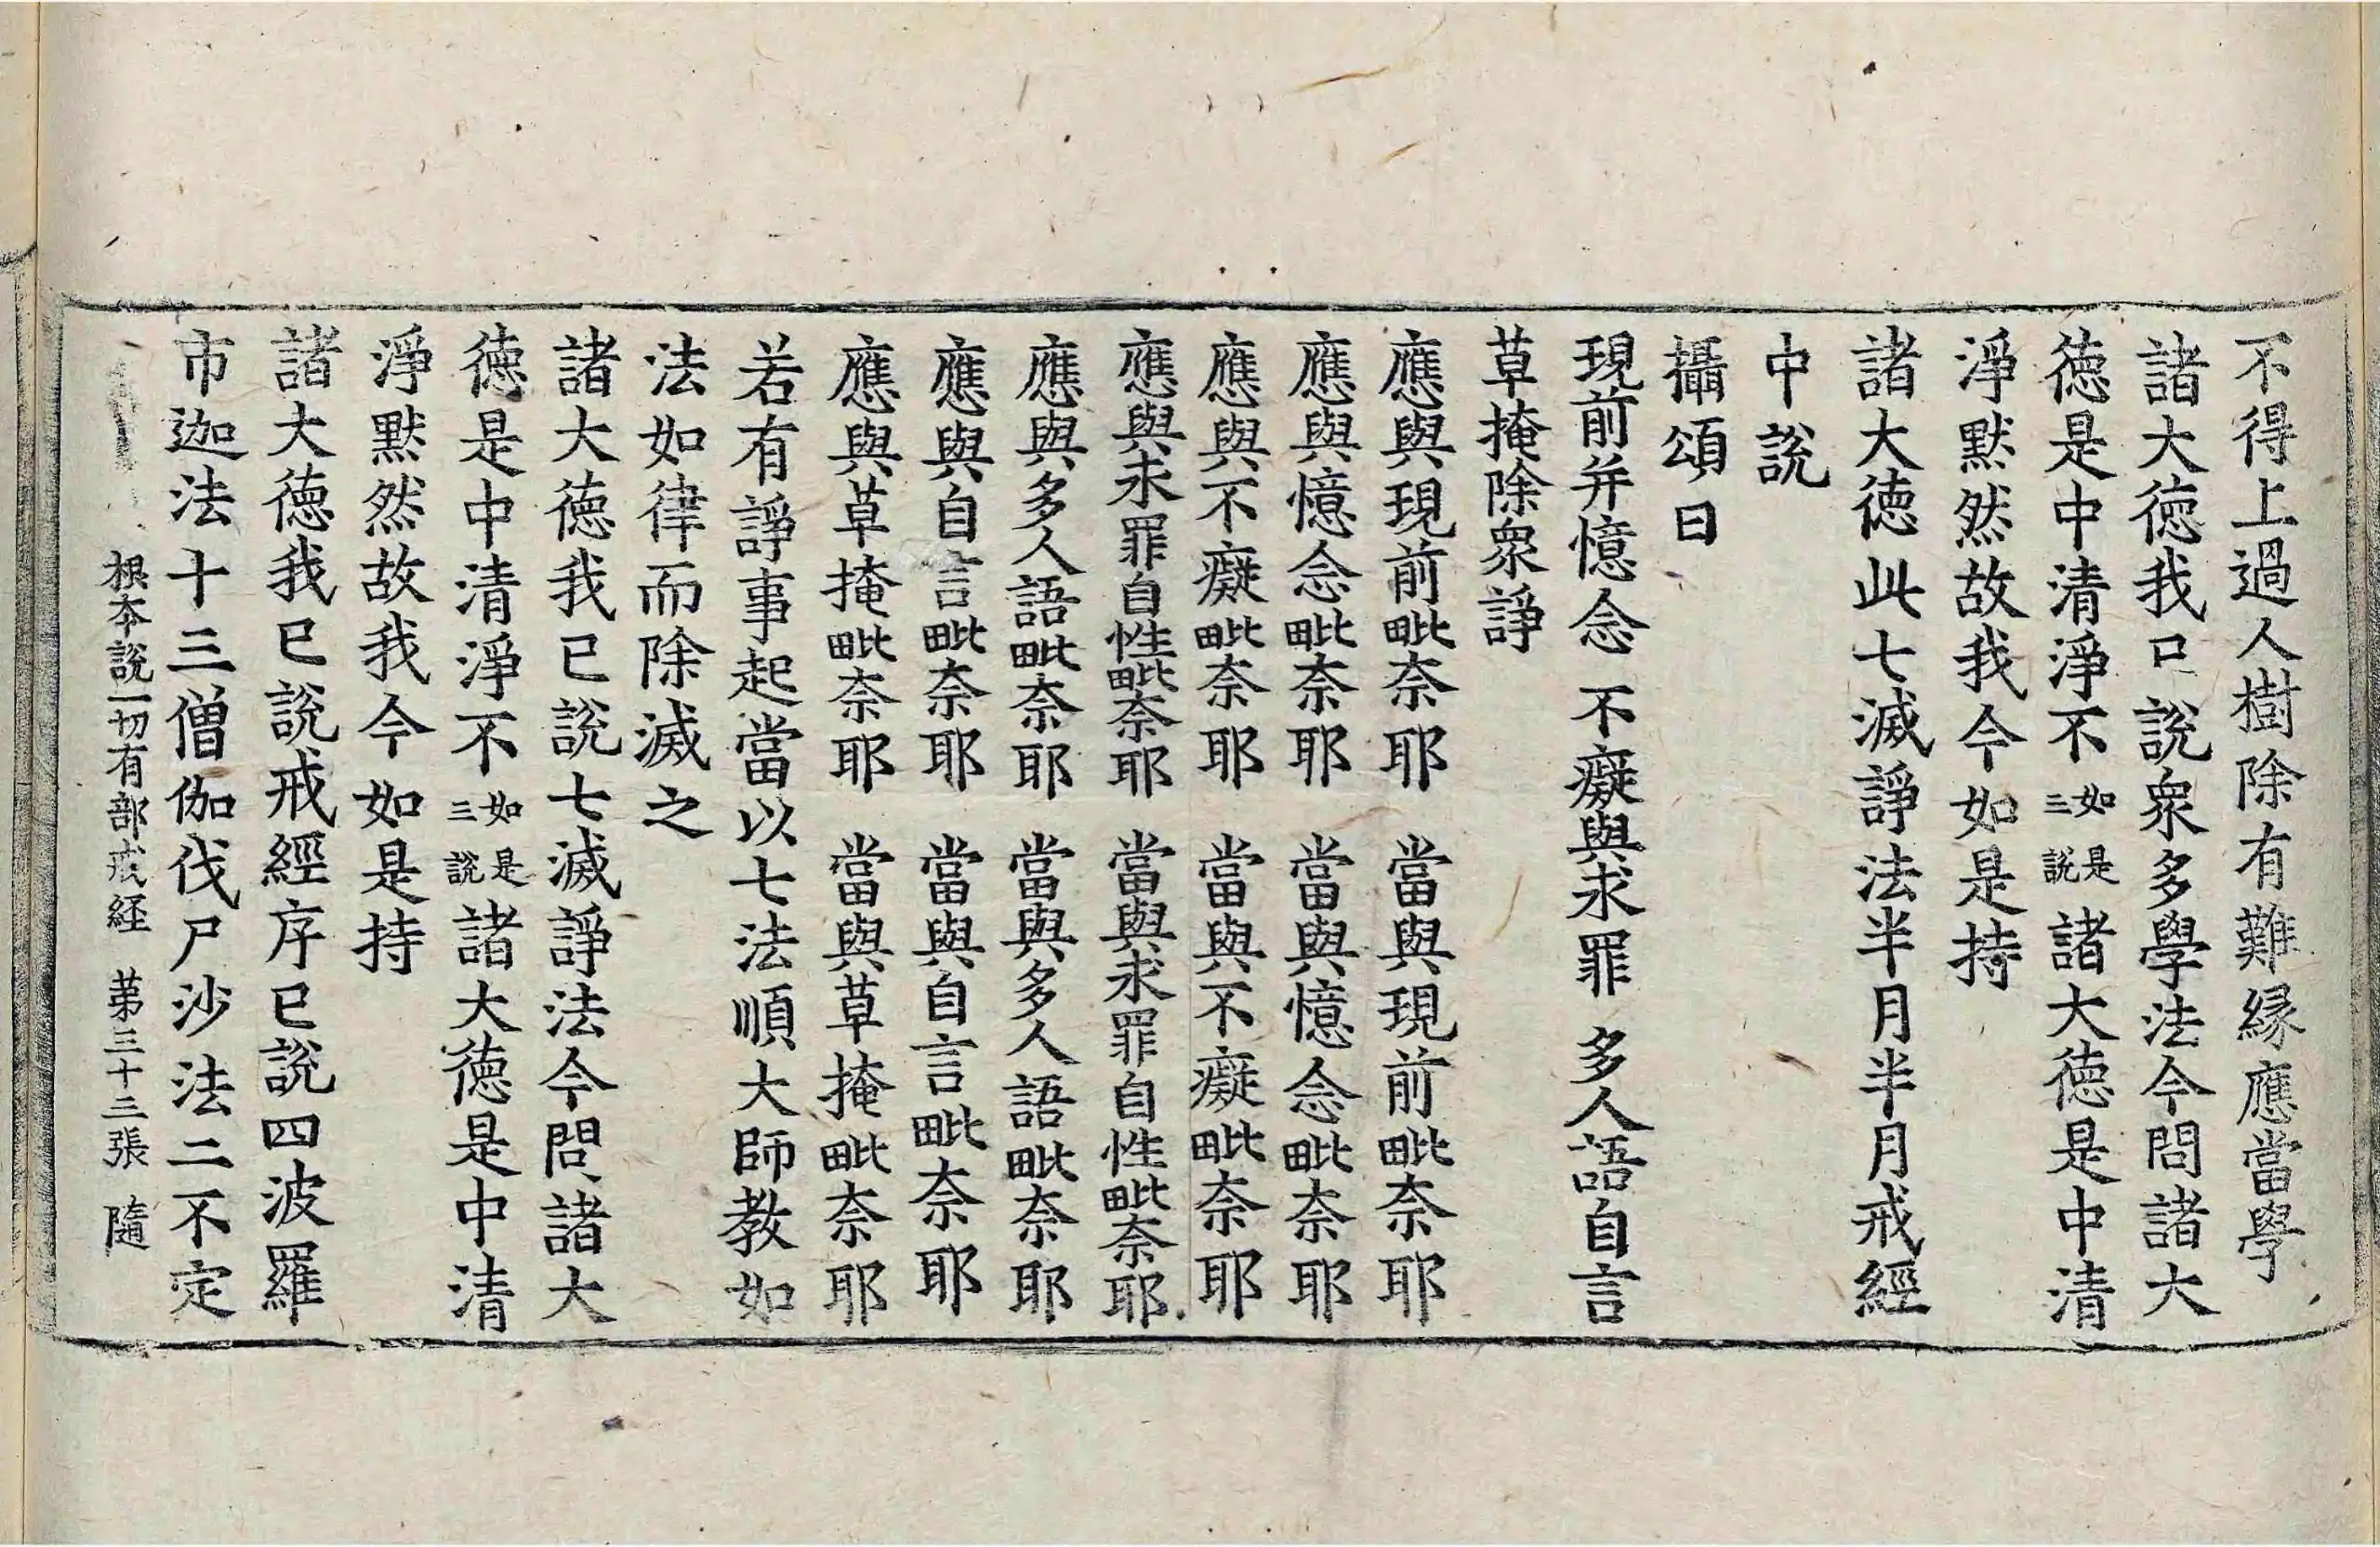 不得上過人樹除有難縁應當學
諸大徳我已說衆多學法今問諸大
徳是中清淨不如是三說諸大徳是中清
淨默然故我今如是持
諸大徳此七滅諍法半月半月戒經
中說
攝頌曰
現前并憶念 不癡與求罪 多人語自言
草掩除衆諍
應與現前毗奈耶 當與現前毗奈耶
應與憶念毗奈耶 當與憶念毗奈耶
應與不癡毗奈耶 當與不癡毗奈耶
應與求罪自性毗奈耶 當與求罪自性毗奈耶
應與多人語毗奈耶 當與多人語毗奈耶
應與自言毗奈耶 當與自言毗奈耶
應與草掩毗奈耶 當與草掩毗奈耶
若有諍事起當以七法順大師教如
法如律而除滅之
諸大徳我已說七滅諍法今問諸大
徳是中清淨不如是三說諸大徳是中清
淨默然故我今如是持
諸大徳我已說戒經序已說四波羅
市迦法十三僧伽伐尸沙法二不定
根本說一切有部戒経 苐三十三張 隨